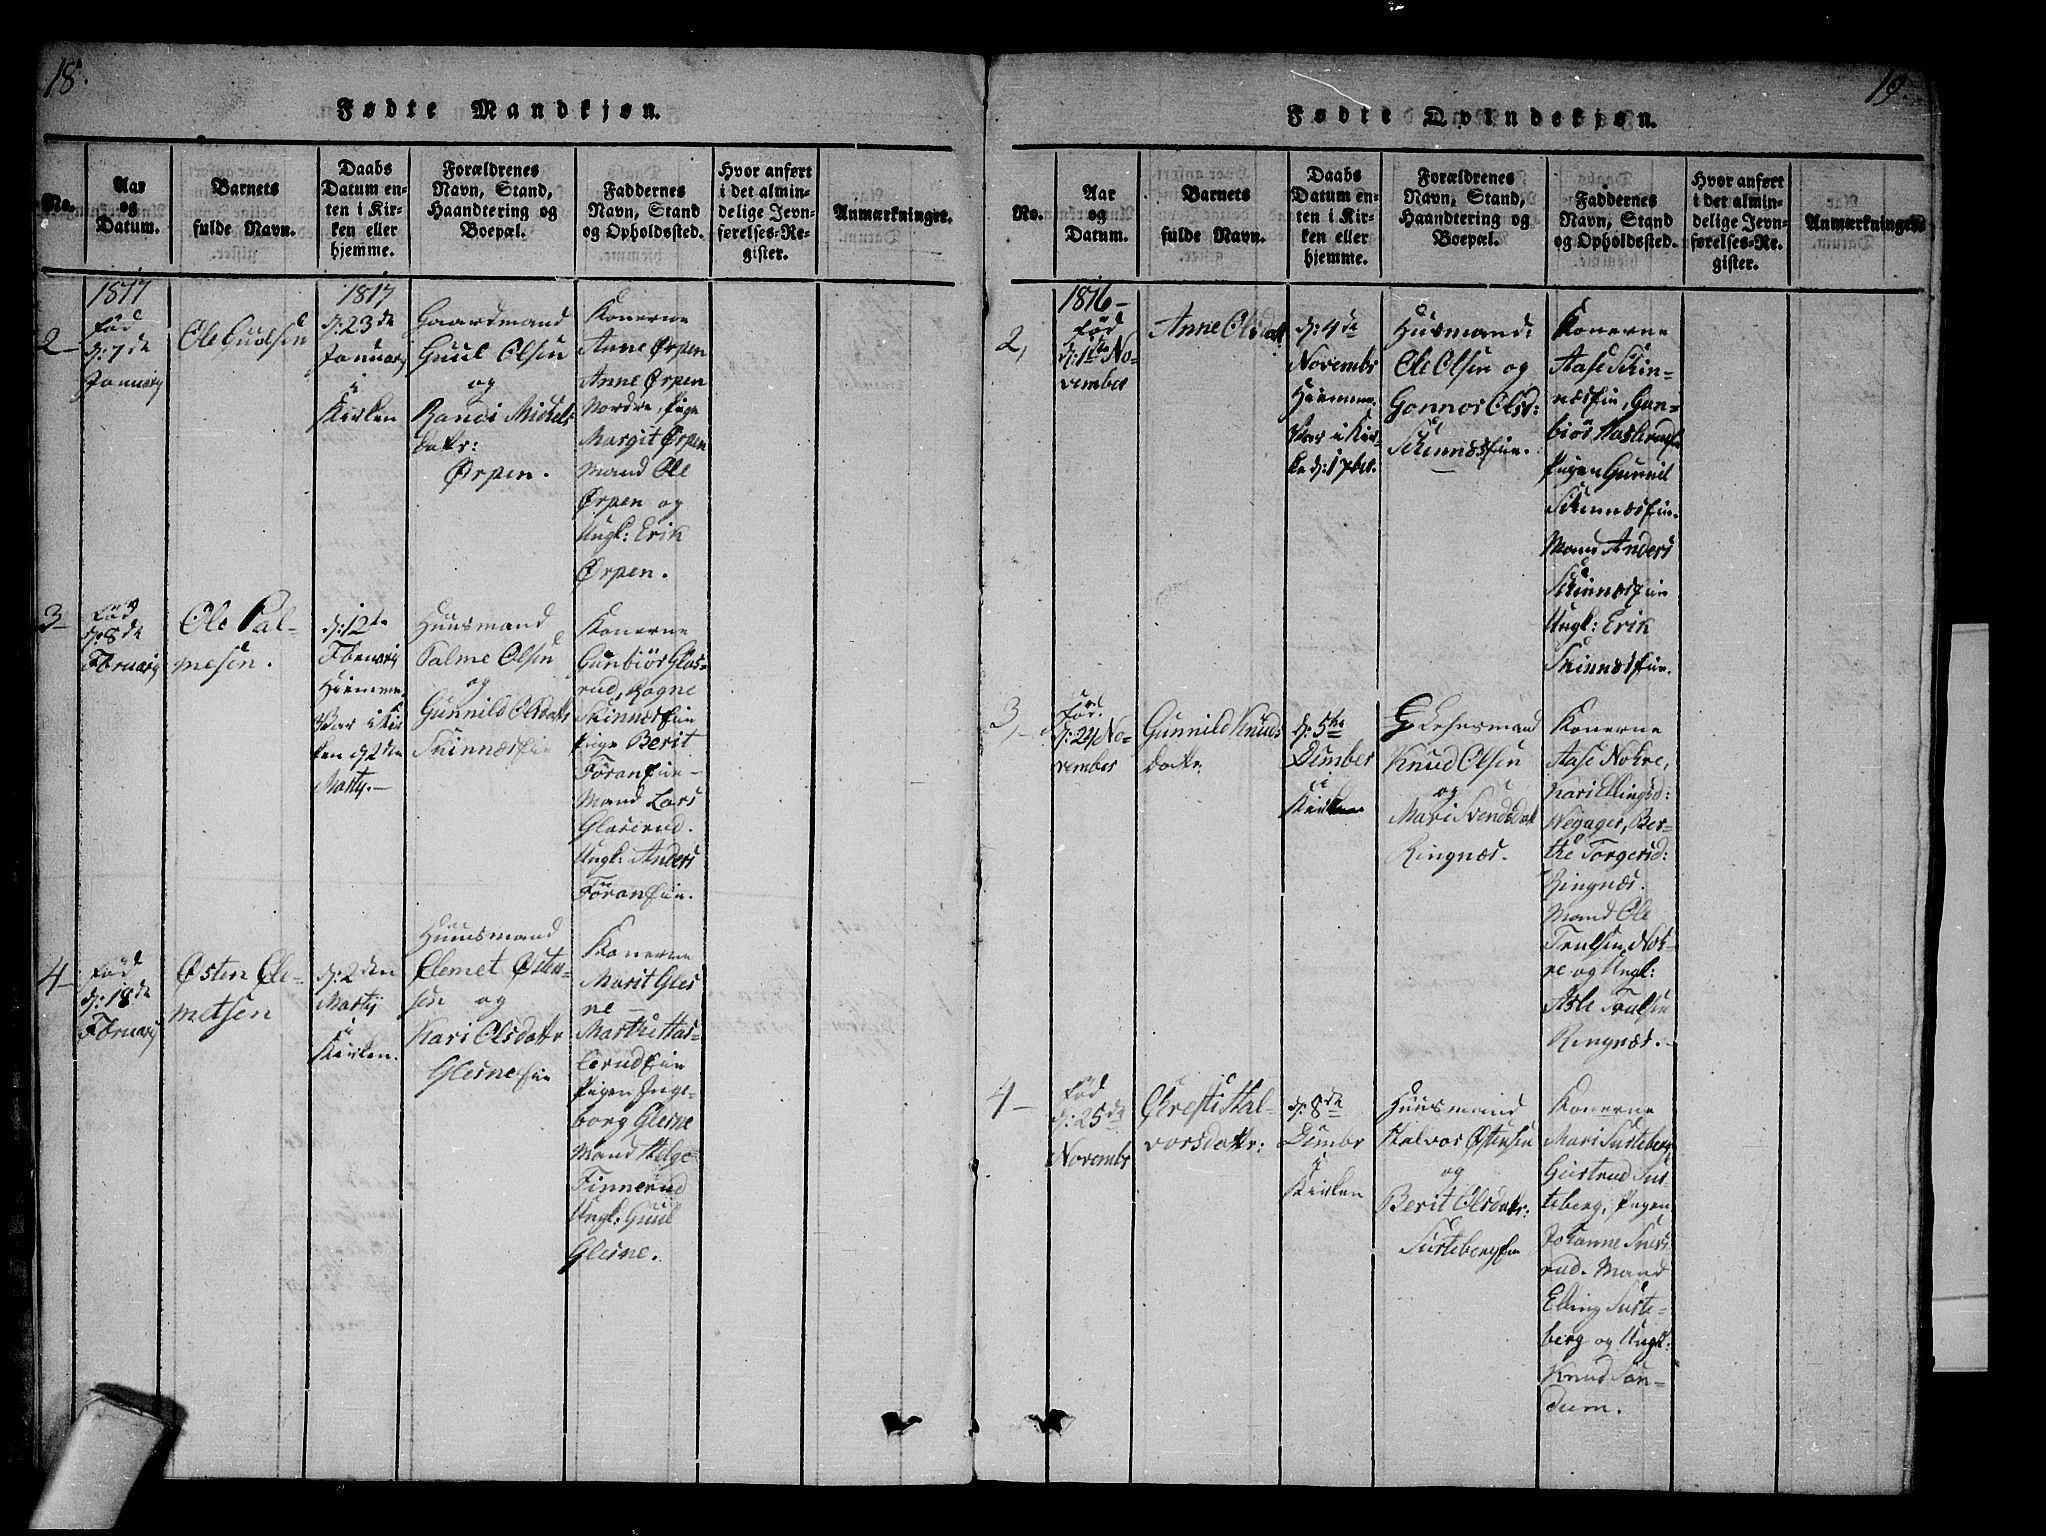 18.
Fødte Mandkjøn.
No.
Aar
og
Datum.
Barnets
fulde Navn.
Daabs
Datum en-
ten i Kir-
ken eller
hjemme.
Forældrenes
Navn, Stand,
Haandtering og
Boepæl.
Faddernes
Navn, Stand
og Opholdssted.
Hvor anført
i det almin-
delige Jevn-
førelses-Re-
gister.
Anmærkninger.
2
1817
Fød
d: 7de
Januarij
Ole Guulsen
1817
d: 23de
Januarij
i
Kirken
Gaardmand
Guul Olsen
og
Randi Mickels
datr:
Ørpen.
Konerne
Anne Ørpen
Anne Ørpen
Nordre, Pige
Margit Ørpen
Mand Ole
Ørpen og
Ungk: Erik
Ørpen.
3
Fød
d: 8de
Februarij
Ole Pal-
mesen.
d: 12te
Februarij
Hiemme.
Bar i Kir
ken d 2den
Martij.
Huusmand
Palme Olsen
og
Gunnild Olsdatr
Skinnesein
Konerne
Gunbiør Glas-
rud, Ragne
Skinnesein
Pige Berit
Føranein
Mand Lars
Glaserud.
Ungk: Anders
Føranein.
4
Fød
d: 18de
Februarij
Østen Cle-
metsen
d: 2den
Martij
i
Kirken.
Huusmand
Clemet Østen-
sen og
Kari Olsdattr
Glesneein
Konerne
Marit Gles
ne
Marthe Has-
lerudein
Pigen Inge-
borg Glesne
Mand Helge
Finnerud
Ungk: Guul
Glesne.
19.
Fødte Qvindekjøn.
No.
Aar
og
Datum.
Barnets
fulde Navn.
Daabs
Datum en-
ten i Kir-
ken eller
hjemme.
Forældrenes
Navn, Stand,
Haandtering og
Boepæl.
Faddernes
Navn, Stand
og Opholdssted.
Hvor anført
i det almin-
delige Jevn-
førelses-Re-
gister.
Anmærkninger.
2,
1816
Fød
d: 1ste No-
vember
Anne Olsdatr
d: 4de
Novembr
Hiemme.
Bar i Kir-
ke d: 17 br.
Husmand:
Ole Olsen og
Gonnor Olsd:
Skinnesein.
Konerne
Aase Skin-
nesein, Gun-
biør Haslerud
Pigen Gunnil
Skinnesein.
Mand Anders
Skinnesein
Ungk: Erik
Skinnesein.
3,
Fød.
d: 24 No-
vember
Gunnild Knuds
datr.
d: 5te
Decmber
i
Kirken
Knud Olsen
og
Mari Svendsdat
Ringnæs.
Konerne
Aase Nokre,
Kari Ellingsd:
Vegager, Ber-
the Torgersd:
Ringnæs.
Mand Ole
Trulsen Nok-
re og Ungk:
Asle Trulsen
Ringnæs.
4
Fød
d: 25de
Novembr
Cresti Hal-
vorsdattr:
d: 8de
Decmbr
i
Kirken
Huusmand
Halvor Østensen
og
Berit Olsdatr:
Surtebergein
Konerne
Mari Surteberg
Giertrud Sur-
teberg, Pigen
Johanne Sners
rud. Mand
Elling Surte-
berg og Ungk:
Knud Son-
dum.